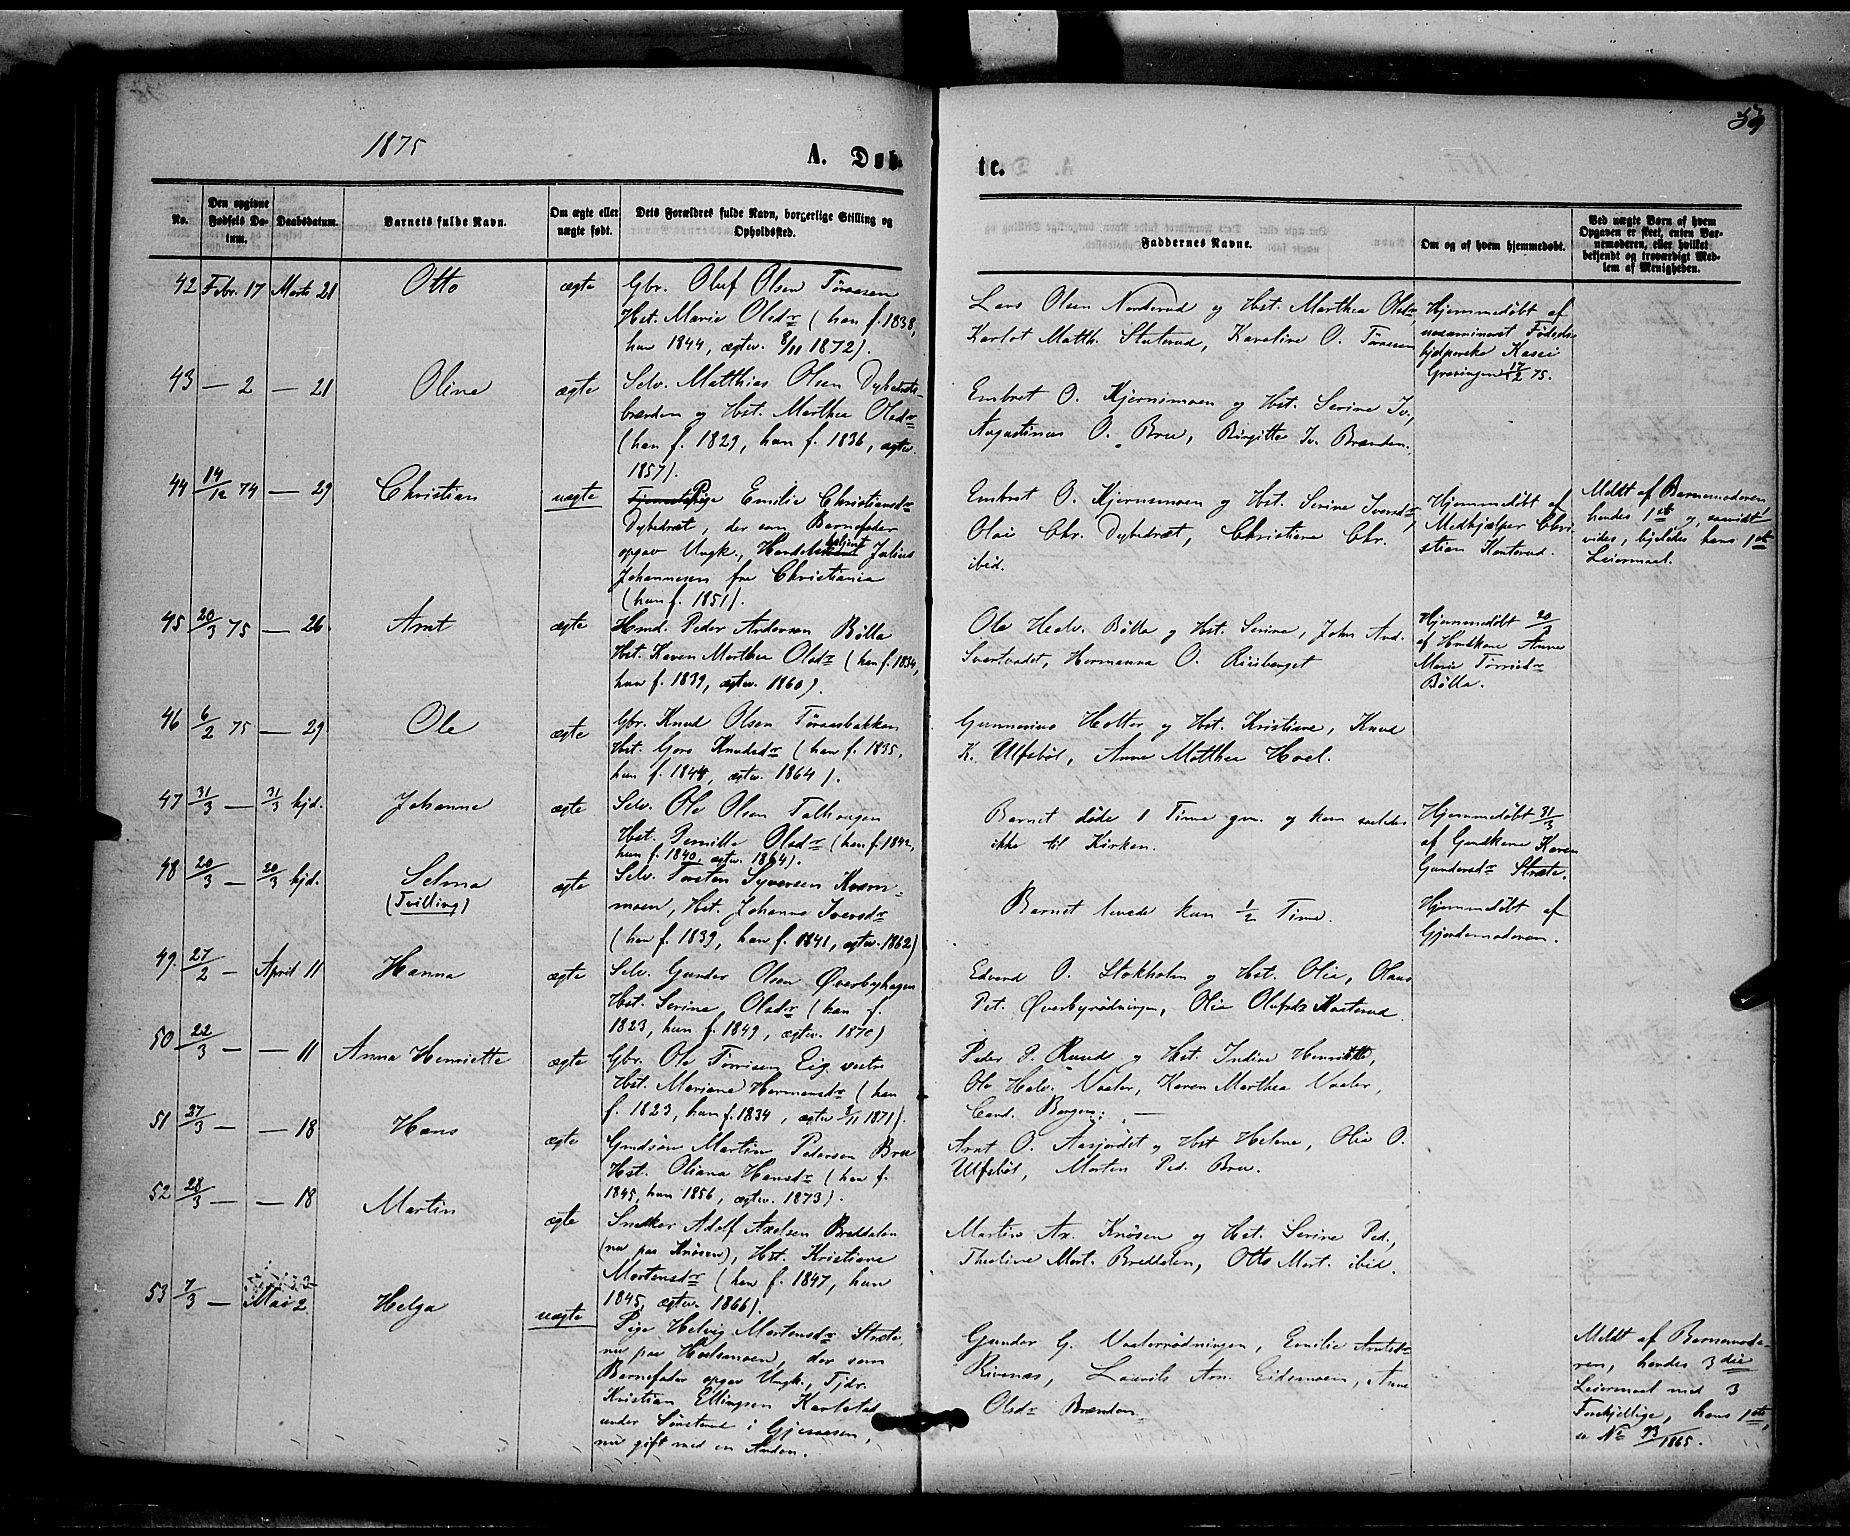 1875
A. Døb
te.
39
No.
Den opgivne Fødsels Datum.
Daabsdatum.
Barnets fulde Navn.
Om ægte eller uægte født.
Dets Forældres fulde Navn, borgerlige Stilling og Opholdssted.
Faddernes Navne.
Om og af hvem hjemmedøbt.
Ved uægte Børn af hvem Opgaven er skeet, enten Barnemoderen, eller hvilket bekjendt og troværdigt Medlem af Menigheden.
42 Febr. 17 Marts 21 Otto ægte
Gbr. Oluf Olsen Töraasen
Hst. Marie Olsdr (han f. 1838,
hun 1844, ægtev. 8/11 1872).
Lars Olsen Norderud og Hst. Marthea Olsdr,
Karlot Matth. Sluterud, Karoline O. Töraasen
Hjemmedøbt af
uexamineret Fødsels
hjelperske
17/2 75.
43 — 2 — 21 Oline ægte
Selv. Matthias Olsen Dybedræts-
brænden og Hst. Marthea Olsdr
(han f. 1829, hun f. 1836, ægtev.
1857).
Embret O. Kjernsmoen og Hst. Serine Iv.,
Augustinus O. Bru, Birgitte Iv. Brænden.
44 14/12 74 — 29 Christian uægte
Pige Emilie Christiansdr
Dybedræt, der som Barnefader
opgav Ungk., Handelsbetjent Julius
Johannesen fra Christiania
(hun f. 1851).
Embret O. Kjernsmoen og Hst. Serine Iversdr,
Olai Chr. Dybedræt, Christiane Chr.
ibid.
Hjemmedøbt af
Medhjælper Chri-
stian Kosterud.
Meldt af Barnemoderen,
hendes 1ste og, saavidt
vides, ligeledes hans 1ste
Leiermaal.
45 20/3 75 — 26 Arnt ægte
Hmd. Peder Andersen Bölla
Hst. Karen Marthea Olsdr (han f. 1834,
hun f. 1839, ægtev. 1860).
Ole Hedv. Bölla og Hst. Serine, John And.
Svartvadet, Hermanna O. Riisberget
Hjemmedøbt 20/3
af Huskone Anne
Marie
Bölla.
46 6/2 75 — 29 Ole ægte
Gbr. Knud Olsen Töraasbakken
Hst. Goro Knudsdr (han f. 1835,
hun f. 1844, ægtev. 1864).
Gunnerius Holter og Hst. Kristiane, Knud
K. Ulfsböl, Anne Matthea Hoel.
47 31/3 — 31/3 hjd. Johanne ægte
Selv. Ole Olsen Talhaugen
Hst. Pernille Olsdr (han f. 1842,
hun f. 1840, ægtev. 1864).
Barnet døde 1 Time gm. og kom saaledes
ikke til Kirken.
Hjemmedøbt 31/3
af Gmdkone Karen
Gundersdr Stræte.
48 20/3 — 20/3 hjd. Selma
(Tvilling) ægte
Selv. Torsten Syversen Kværn-
moen, Hst. Johanne Iversdr
(han f. 1839, hun f. 1841, ægtev. 1862)
Barnet levede kun 1/2 Time.
Hjemmedøbt af
Gjordemoderen.
49 27/2 — April 11 Hanna ægte
Selv. Gunder Olsen Øverbyhagen
Hst. Serine Olsdr (han f.
1823, hun f. 1849, ægtev. 1870)
Edvard O. Stokholm og Hst. Olia, Olaus
Pet. Øverbyrödningen, Olia Olufsdr Kosterud.
50 22/3 — — 11 Anna Henriette ægte
Gbr. Ole Torrisen Eig vestre
Hst. Mariane Hermansdr (han
f. 1823, hun f. 1834, ægtev 3/11 1871).
Peder P. Ruud og Hst. Indine Henriette,
Ole Halv. Vaaler, Karen Marthea Vaaler,
Cand. Borgen. —
51 27/3 — — 18 Hans ægte
Gmdsøn Martin Pedersen Bru
Hst. Oliana Hansdr (han f.
1845, hun 1856, ægtev. 1873).
Arnt O. Aasjordet og Hst Helene, Olia O.
Ulfsböl, Morten Ped. Bru.
52 28/3 — — 18 Martin ægte
Snedker Adolf Axelsen Breddalen
(nu paa Knösen), Hst. Kristiane
Mortensdr (han f. 1847, hun
1845, ægtev. 1866).
Martin Ax. Knösen og Hst. Serine Ped.,
Theoline Mort. Breddalen, Otto Mort. ibid.
53 7/3 — Mai 2 Helga uægte
Pige Helvig Mortensdr Stræte,
nu paa Hoelsmoen, der som
Barnefader opgav Ungk., Tjdr.
Kristian Ellingsen Karlstad
under Sönsterud i Gjesaasen,
nu gift med en Anden.
Gunder G. Vaalerrödningen, Emilie Arntsdr
Rivenæs, Laurits Arn. Eidemoen, Anne
Olsdr Brænden
Meldt af Barnemode-
ren, hendes 3die
Leiermaal med 3
Forskjellige, hans 1ste,
se No 93/1865.